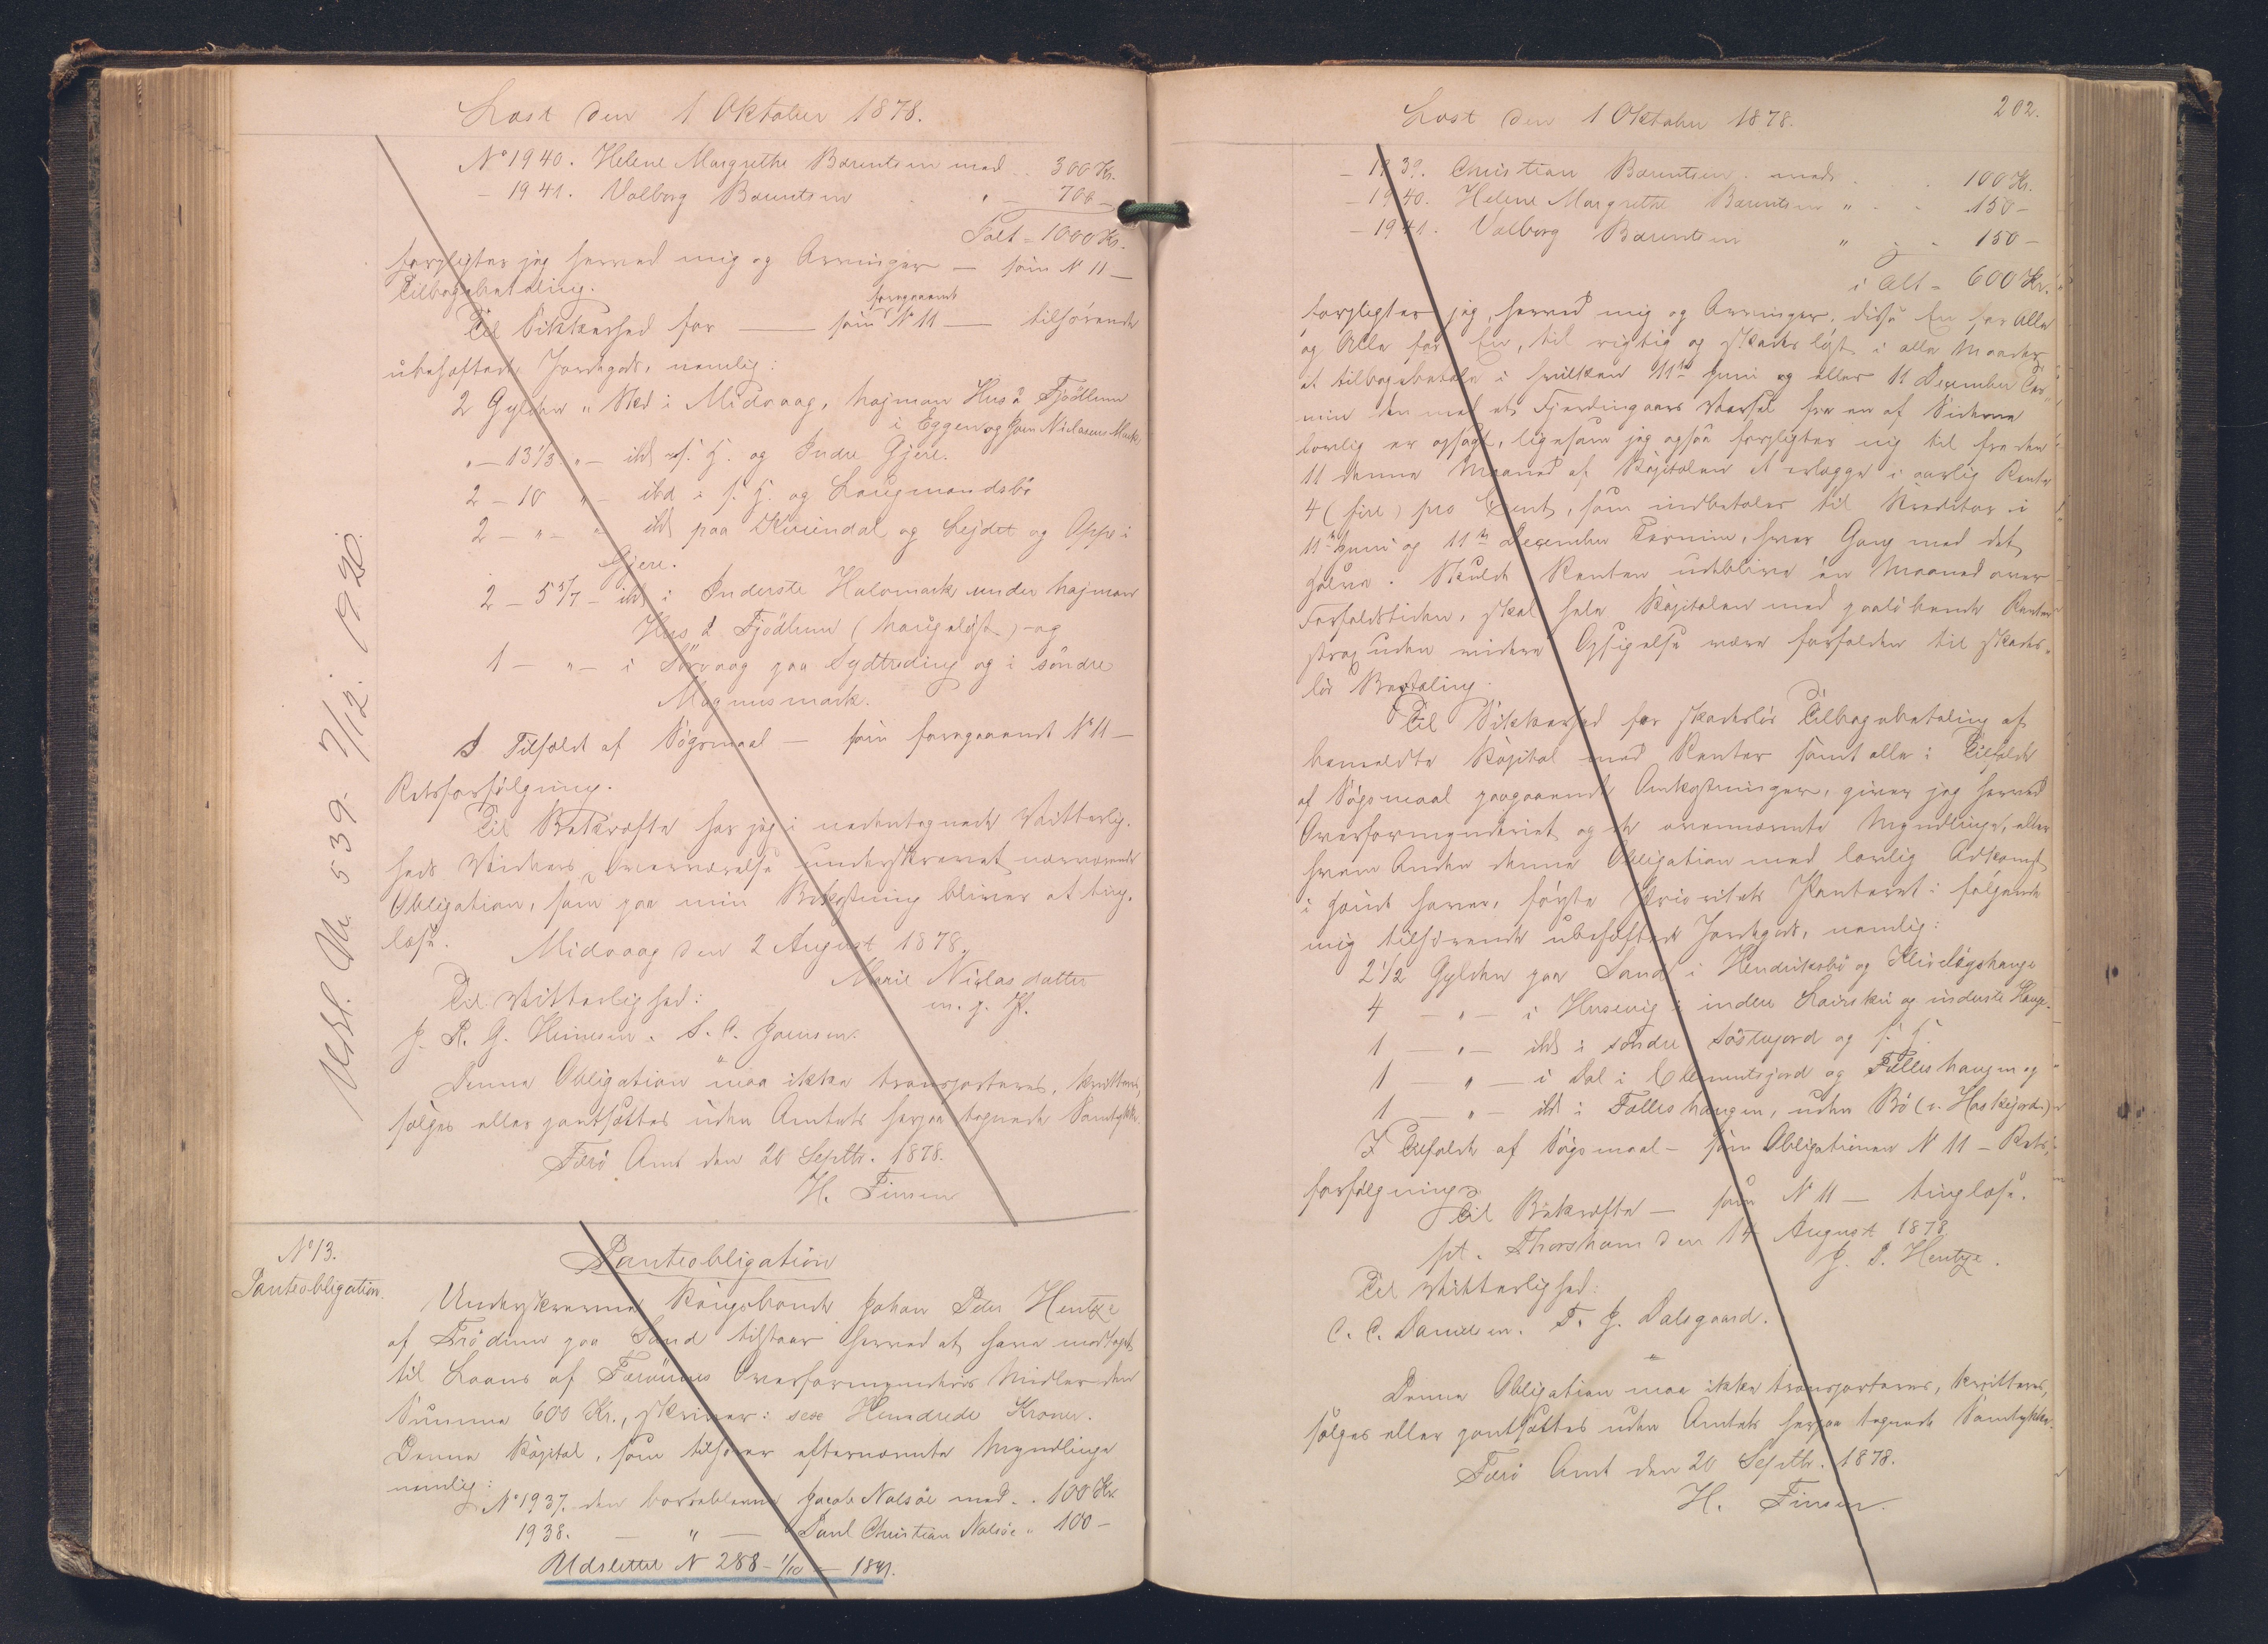 Læst den 1 Oktober 1878.
No 1940. Helene Margrethe Barentsen med .. 300 Kr.
- 1941. Valborg Barentsen " - 700 -
Ialt = 1000 Kr.
forpligter jeg herved mig og Arvinger — som N 11 —
Tilbagebetaling.
Til Sikkerhed for — som foregaaende No 11 — tilhørende
ubehæftede Jordegods, nemlig:
2 Gylden " Skd i Midvaag, højman Hus á Fjødlum
i Eggen og Joen Niclasens Mark,
" — 13 1/3 " — ibd s. H. og Indre Gjere.
2 — 10 " — ibd i s. H. og Laugmandsbö
2 — " — " ibd paa Kvindal og Lejdet og Oppe i
Gjere.
2 — 5 5/7 — ibd i Inderste Halvmark under højman
Hus á Fjödlum (haugeløst) og
1 — " — i Sörvaag paa Sydtreding og i söndre
Magnusmark.
I Tilfælde af Søgsmaal — som foregaaende No 11 —
Retsforfølgning.
Til Bekræfte har jeg i nedentegnede Vitterlig-
heds Vidners Overværelse underskrevet nærværende
Obligation, som paa min Bekostning bliver at ting-
læse.
Midvaag den 2 August 1878.
Marie Niclasdatter
m. f. P.
Til Vitterlighed:
J. R. G. Heinesen. S. C. Joensen.
Denne Obligation maa ikke transporteres, kvitteres,
sælges eller pantsættes uden Amtets herpaa tegnede Samtykke.
Færö Amt den 20 Septbr. 1878.
H. Finsen
Udsl. No 539 - 7/12. 1920.
No 13.
Panteobligation.
Panteobligation
Underskrevne Kongsbonde Johan Peter Hentze
af Trödum paa Sand tilstaar herved at have modtaget
til Laans af Færøernes Overformynderies Midler den
Summa 600 Kr., skriver: sex Hundrede Kroner.
Denne Kapital, som tilhører efternævnte Myndlinge
nemlig:
No 1937. den borteblevne Jacob Nolsöe med .. 100 Kr.
1938. — " — Paul Christian Nolsöe " 100 -
Udslettet N 288 - 1/10 - 1891.
202.
Læst den 1 Oktober 1878.
- 1939. Christian Barentsen med . . 100 Kr.
- 1940. Helene Margrethe Barentsen " . . 150 -
- 1941. Valborg Barentsen " . . 150 -
i Alt = 600 Kr.
forpligter jeg herved mig og Arvinger, disse En for Alle
og Alle for En, til rigtig og skadesløst i alle Maader
at tilbagebetale i hvilken 11te Juni og eller 11 December Ter-
min den med et Fjerdingaars Varsel fra en af Siderne
lovlig er opsagt, ligesom jeg ogsaa forpligter mig til fra den
11 denne Maaned af Kapitalen at erlægge i aarlig Rente
4 (fire) pro Cent, som indbetales til Kreditor i
11te Juni og 11te December Termin, hver Gang med det
Halve. Skulde Renten udeblive en Maaned over
Forfaldstiden, skal hele Kapitalen med paaløbende Renter
strax uden videre Opsigelse være forfalden til skades-
løs Betaling.
Til Sikkerhed for skadesløs Tilbagebetaling af
bemeldte Kapital med Renter samt alle i Tilfælde
af Søgsmaal paagaaende Omkostninger, giver jeg herved
Overformynderiet og de ovennævnte Myndlinge, eller
hvem Anden denne Obligation med lovlig Adkomst
i Hænde haver, første Prioritets Panteret i følgende
mig tilhørende ubehæftede Jordegods, nemlig:
2 1/2 Gylden paa Sand i Hendriksbö og
4 — " — i Husevig i indere og inderste Hauge.
1 — " — ibd i söndre og s. H.
1 " — i Dal i Clementsjord og Fælleshaugen og
1 — " — ibd i Fælleshaugen, uden Bö
I Tilfælde af Søgsmaal — som Obligationen N 11 — Rets-
forfølgning.
Til Bekræfte — som N 11 — tinglæse.
pt. Thorshavn den 14 August 1878
J. P. Hentze.
Til Vitterlighed:
C. C. Danielsen. T. J. Dalsgaard.
Denne Obligation maa ikke transporteres, kvitteres,
sælges eller pantsættes uden Amtets herpaa tegnede Samtykke.
Færö Amt den 20 Septbr. 1878.
H. Finsen.